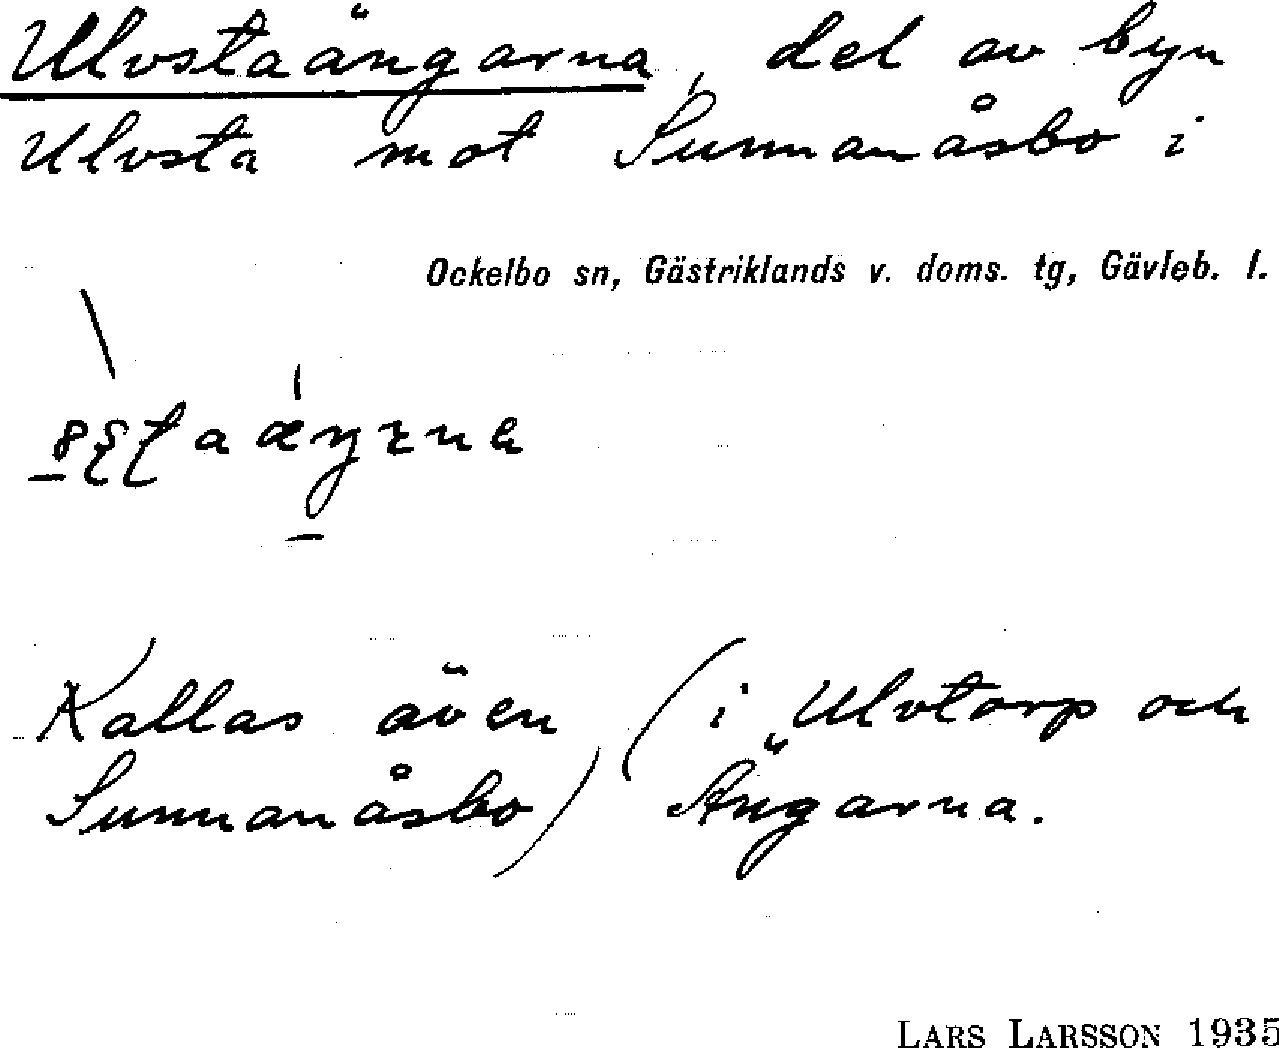 Ulvstaängarna, del av byn
Ulvsta mot Sunnanåsbo i
Ockelbo sn, Gästriklands v. doms. tg, Gävleb. l.
Kallas även (i Ulvtorp och
Sunnanåsbo) Ängarna.
LARS LARSSON 1935